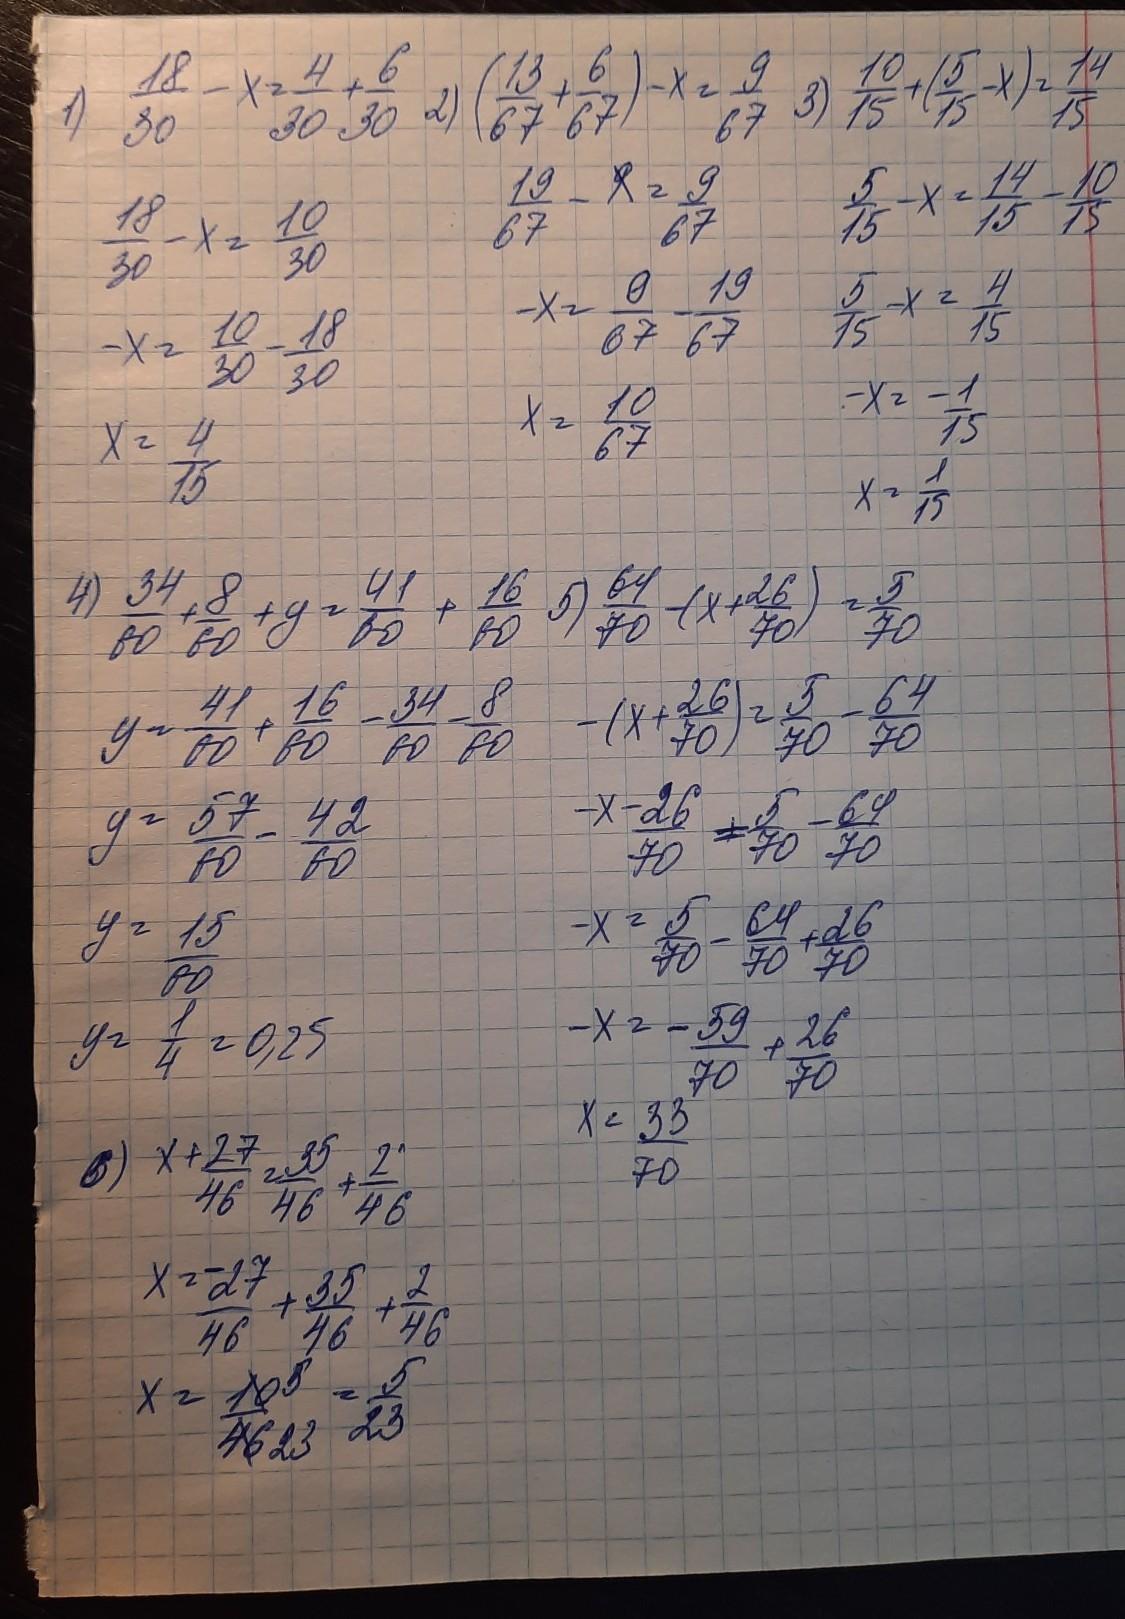 1) 18/30 - x = 4/30 + 6/30
18/30 - x = 10/30
-x = 10/30 - 18/30
x = 4/15
2) (13/67 + 6/67) - x = 9/67
19/67 - x = 9/67
-x = 9/67 - 19/67
x = 10/67
3) 10/15 + (5/15 - x) = 14/15
5/15 - x = 14/15 - 10/15
5/15 - x = 4/15
-x = -1/15
x = 1/15
4) 34/60 + 8/60 + y = 41/60 + 16/60
y = 41/60 + 16/60 - 34/60 - 8/60
y = 57/60 - 42/60
y = 15/60
y = 1/4 = 0,25
5) 64/70 - (x + 26/70) = 5/70
-(x + 26/70) = 5/70 - 64/70
-x - 26/70 = 5/70 - 64/70
-x = 5/70 - 64/70 + 26/70
-x = -59/70 + 26/70
x = 33/70
6) x + 27/46 = 35/46 + 2/46
x = -27/46 + 35/46 + 2/46
x = 10 5/46 23 = 5/23